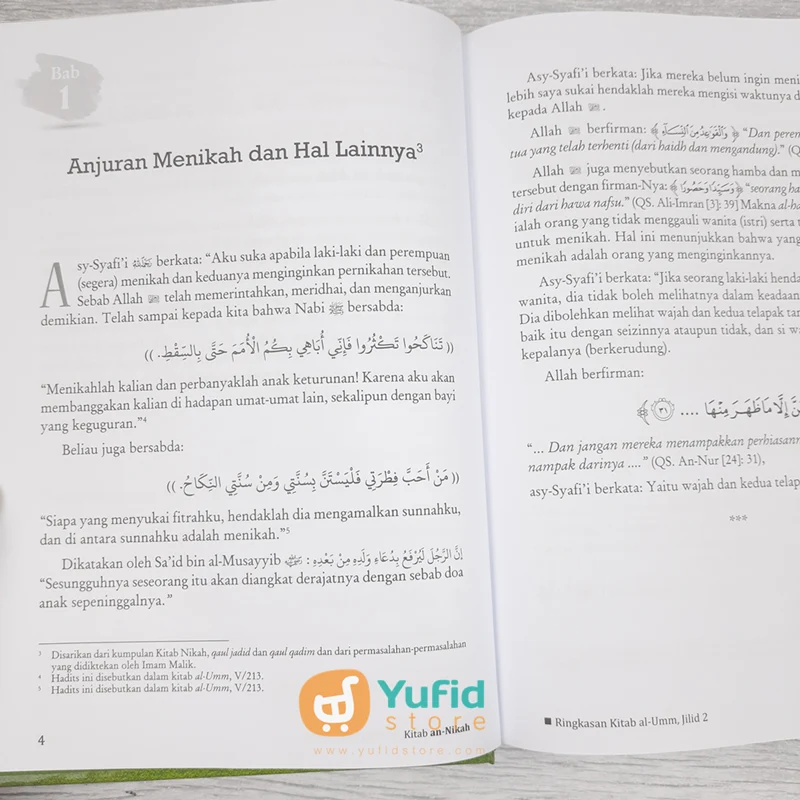 Bab
1
Anjuran Menikah dan Hal Lainnya³
Asy-Syafi'i رحمه الله berkata: "Aku suka apabila laki-laki dan perempuan
(segera) menikah dan keduanya menginginkan pernikahan tersebut.
Sebab Allah ﷻ telah memerintahkan, meridhai, dan menganjurkan
demikian. Telah sampai kepada kita bahwa Nabi ﷺ bersabda:
(( تَنَاكَحُوا تَكْثُرُوا فَإِنِّي أُبَاهِي بِكُمُ الْأُمَمَ حَتَّى بِالسِّقْطِ. ))
"Menikahlah kalian dan perbanyaklah anak keturunan! Karena aku akan
membanggakan kalian di hadapan umat-umat lain, sekalipun dengan bayi
yang keguguran."⁴
Beliau juga bersabda:
(( مَنْ أَحَبَّ فِطْرَتِي فَلْيَسْتَنَّ بِسُنَّتِي وَمِنْ سُنَّتِي النِّكَاحُ. ))
"Siapa yang menyukai fitrahku, hendaklah dia mengamalkan sunnahku,
dan di antara sunnahku adalah menikah."⁵
Dikatakan oleh Sa'id bin al-Musayyib : إِنَّ الرَّجُلَ لَيُرْفَعُ بِدُعَاءِ وَلَدِهِ مِنْ بَعْدِهِ
"Sesungguhnya seseorang itu akan diangkat derajatnya dengan sebab doa
anak sepeninggalnya."
³ Disarikan dari kumpulan Kitab Nikah, qaul jadid dan qaul qadim dan dari permasalahan-permasalahan
yang didiktekan oleh Imam Malik.
⁴ Hadits ini disebutkan dalam kitab al-Umm, V/213.
⁵ Hadits ini disebutkan dalam kitab al-Umm, V/213.
4
Kitab an-Nikah
Yufid
store
www.yufidstore.com
Asy-Syafi'i berkata: Jika mereka belum ingin meni
lebih saya sukai hendaklah mereka mengisi waktunya d
kepada Allah ﷻ.
Allah ﷻ berfirman: ﴿ وَالْقَوَاعِدُ مِنَ النِّسَاءِ ﴾ "Dan peren
tua yang telah terhenti (dari haidh dan mengandung)." (Q
Allah ﷻ juga menyebutkan seorang hamba dan m
tersebut dengan firman-Nya: ﴿ وَسَيِّدًا وَحَصُورًا ﴾ "seorang ha
diri dari hawa nafsu." (QS. Ali-Imran [3]: 39] Makna al-ha
ialah orang yang tidak menggauli wanita (istri) serta t
untuk menikah. Hal ini menunjukkan bahwa yang
menikah adalah orang yang menginginkannya.
Asy-Syafi'i berkata: "Jika seorang laki-laki henda
wanita, dia tidak boleh melihatnya dalam keadaan
Dia dibolehkan melihat wajah dan kedua telapak tan
baik itu dengan seizinnya ataupun tidak, dan si wa
kepalanya (berkerudung).
Allah berfirman:
إِلَّا مَا ظَهَرَ مِنْهَا .... ٣١ ﴾
"... Dan jangan mereka menampakkan perhiasann
nampak darinya ...." (QS. An-Nur [24]: 31),
asy-Syafi'i berkata: Yaitu wajah dan kedua telap
***
■ Ringkasan Kitab al-Umm, Jilid 2